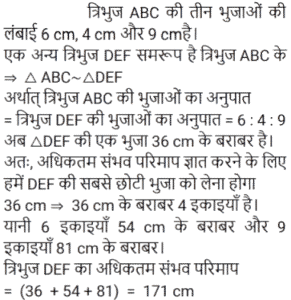 त्रिभुज ABC की तीन भुजाओं की
लंबाई 6 cm, 4 cm और 9 cmहै।
एक अन्य त्रिभुज DEF समरूप है त्रिभुज ABC के
⇒ △ ABC~△DEF
अर्थात् त्रिभुज ABC की भुजाओं का अनुपात
= त्रिभुज DEF की भुजाओं का अनुपात = 6 : 4 : 9
अब △DEF की एक भुजा 36 cm के बराबर है।
अतः, अधिकतम संभव परिमाप ज्ञात करने के लिए
हमें DEF की सबसे छोटी भुजा को लेना होगा
36 cm ⇒ 36 cm के बराबर 4 इकाइयाँ है।
यानी 6 इकाइयाँ 54 cm के बराबर और 9
इकाइयाँ 81 cm के बराबर।
त्रिभुज DEF का अधिकतम संभव परिमाप
= (36 + 54 + 81) = 171 cm